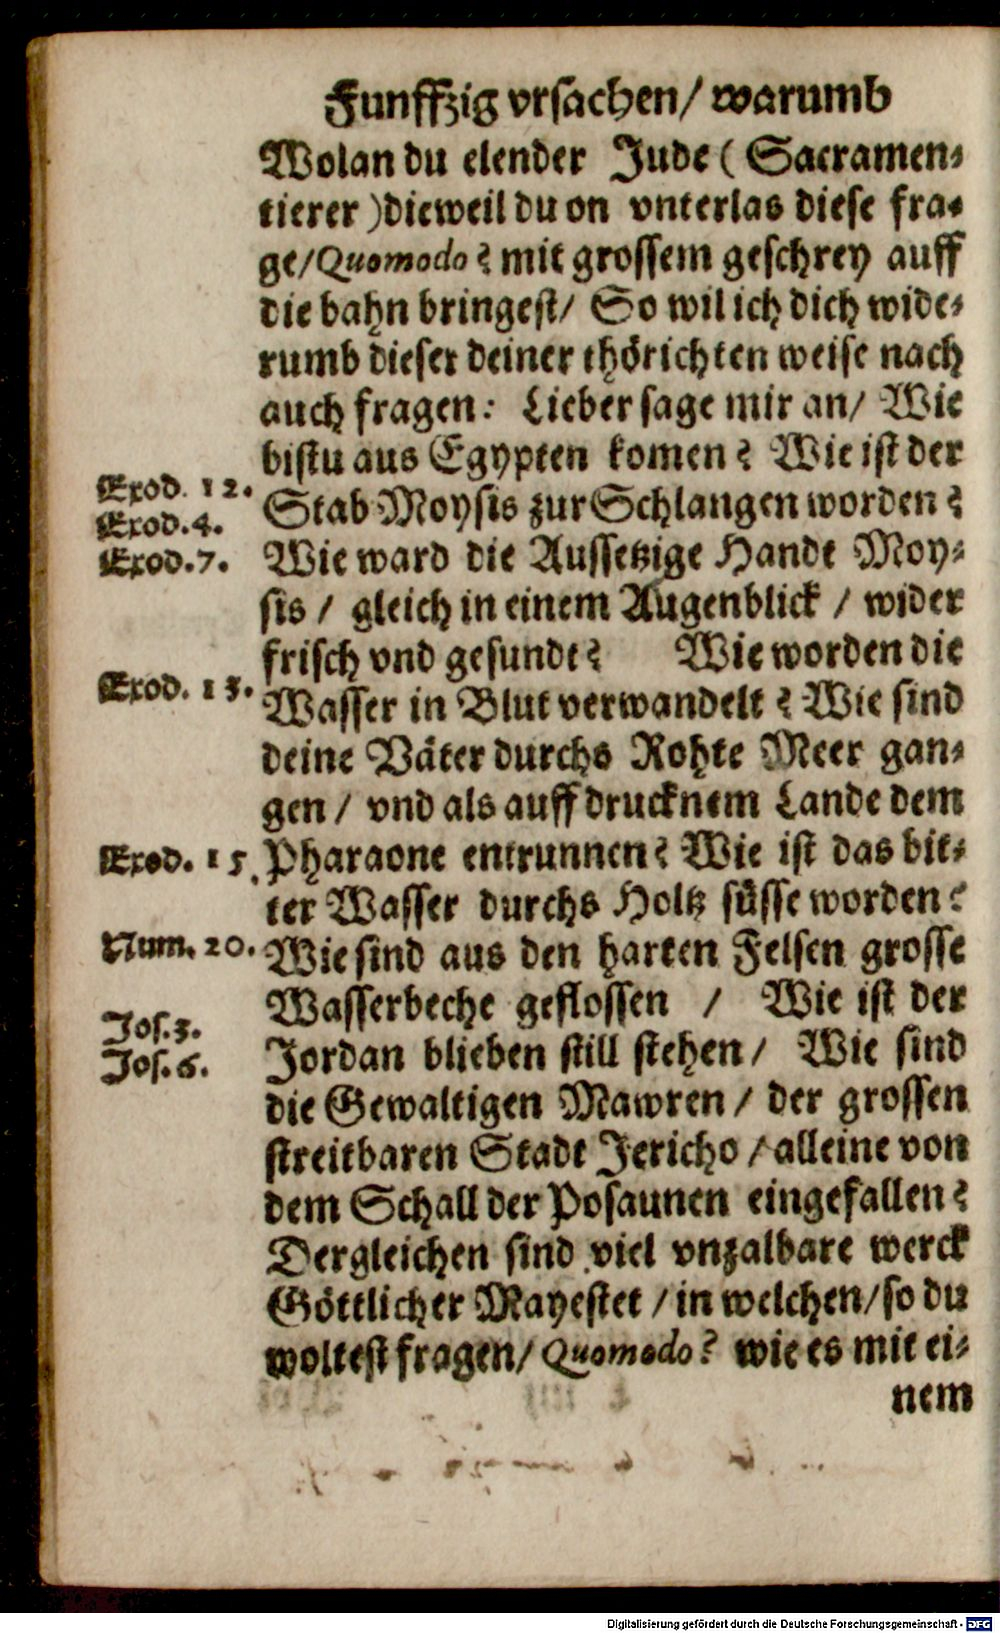 Funffzig vrsachen/ warumb
Wolan du elender Jude ( Sacramen⸗
tierer )dieweil du on vnterlas diese fra⸗
ge/Quomodo? mit grossem geschrey auff
die bahn bringest/ So wil ich dich wide⸗
rumb dieser deiner thörichten weise nach
auch fragen: Lieber sage mir an/ Wie
bistu aus Egypten komen? Wie ist der
Exod. 12.
Stab Moysis zur Schlangen worden?
Exod.4.
Wie ward die Aussetzige Handt Moy⸗
Exod.7.
sis / gleich in einem Augenblick / wider
frisch vnd gesundt? Wie worden die
Exod. 13.
Wasser in Blut verwandelt? Wie sind
deine Väter durchs Rohte Meer gan⸗
gen / vnd als auff drucknem Lande dem
Exod. 15.
Pharaone entrunnen? Wie ist das bit⸗
ter Wasser durchs Holtz süsse worden?
Num. 20.
Wie sind aus den harten Felsen grosse
Wasserbeche geflossen / Wie ist der
Jos.3.
Jordan blieben still stehen/ Wie sind
Jos.6.
die Gewaltigen Mawren / der grossen
streitbaren Stadt Jericho / alleine von
dem Schall der Posaunen eingefallen?
Dergleichen sind viel vnzalbare werck
Göttlicher Mayestet / in welchen/so du
woltest fragen/ Quomodo? wie es mit ei⸗
nem
Digitalisierung gefördert durch die Deutsche Forschungsgemeinschaft - DFG